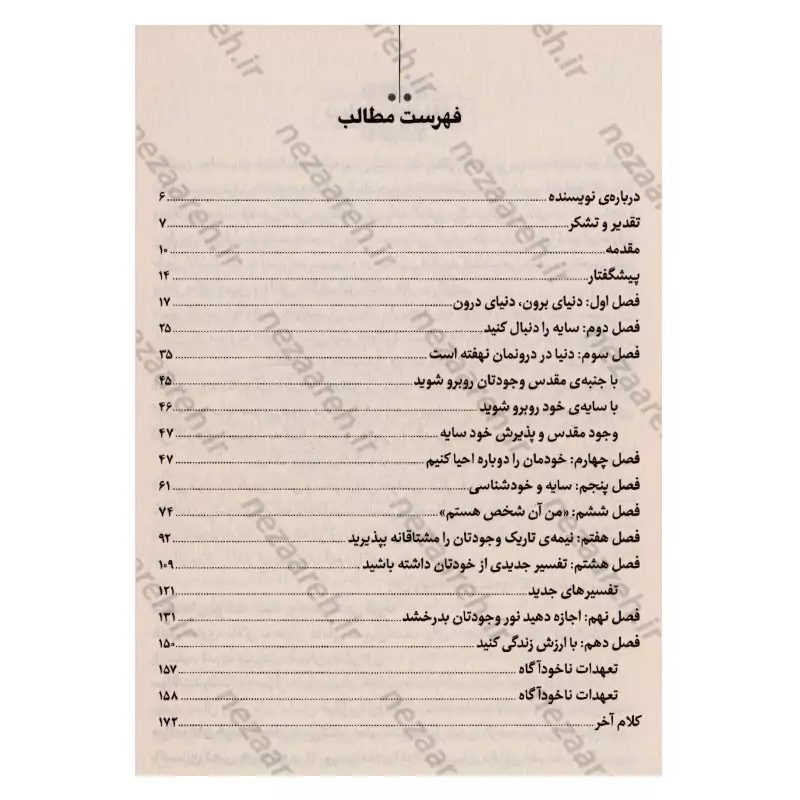 فهرست مطالب
درباره‌ی نویسنده ۶
تقدیر و تشکر ۷
مقدمه ۱۰
پیشگفتار ۱۴
فصل اول: دنیای برون، دنیای درون ۱۷
فصل دوم: سایه را دنبال کنید ۲۵
فصل سوم: دنیا در درونمان نهفته است ۳۵
با جنبه‌ی مقدس وجودتان روبرو شوید ۴۵
با سایه‌ی خود روبرو شوید ۴۶
وجود مقدس و پذیرش خود سایه ۴۷
فصل چهارم: خودمان را دوباره احیا کنیم ۴۷
فصل پنجم: سایه و خودشناسی ۶۱
فصل ششم: «من آن شخص هستم» ۷۴
فصل هفتم: نیمه‌ی تاریک وجودتان را مشتاقانه بپذیرید ۹۲
فصل هشتم: تفسیر جدیدی از خودتان داشته باشید ۱۰۹
تفسیرهای جدید ۱۲۱
فصل نهم: اجازه دهید نور وجودتان بدرخشد ۱۳۱
فصل دهم: با ارزش زندگی کنید ۱۵۰
تعهدات ناخودآگاه ۱۵۷
تعهدات ناخودآگاه ۱۵۸
کلام آخر ۱۷۲
nezaareh.ir